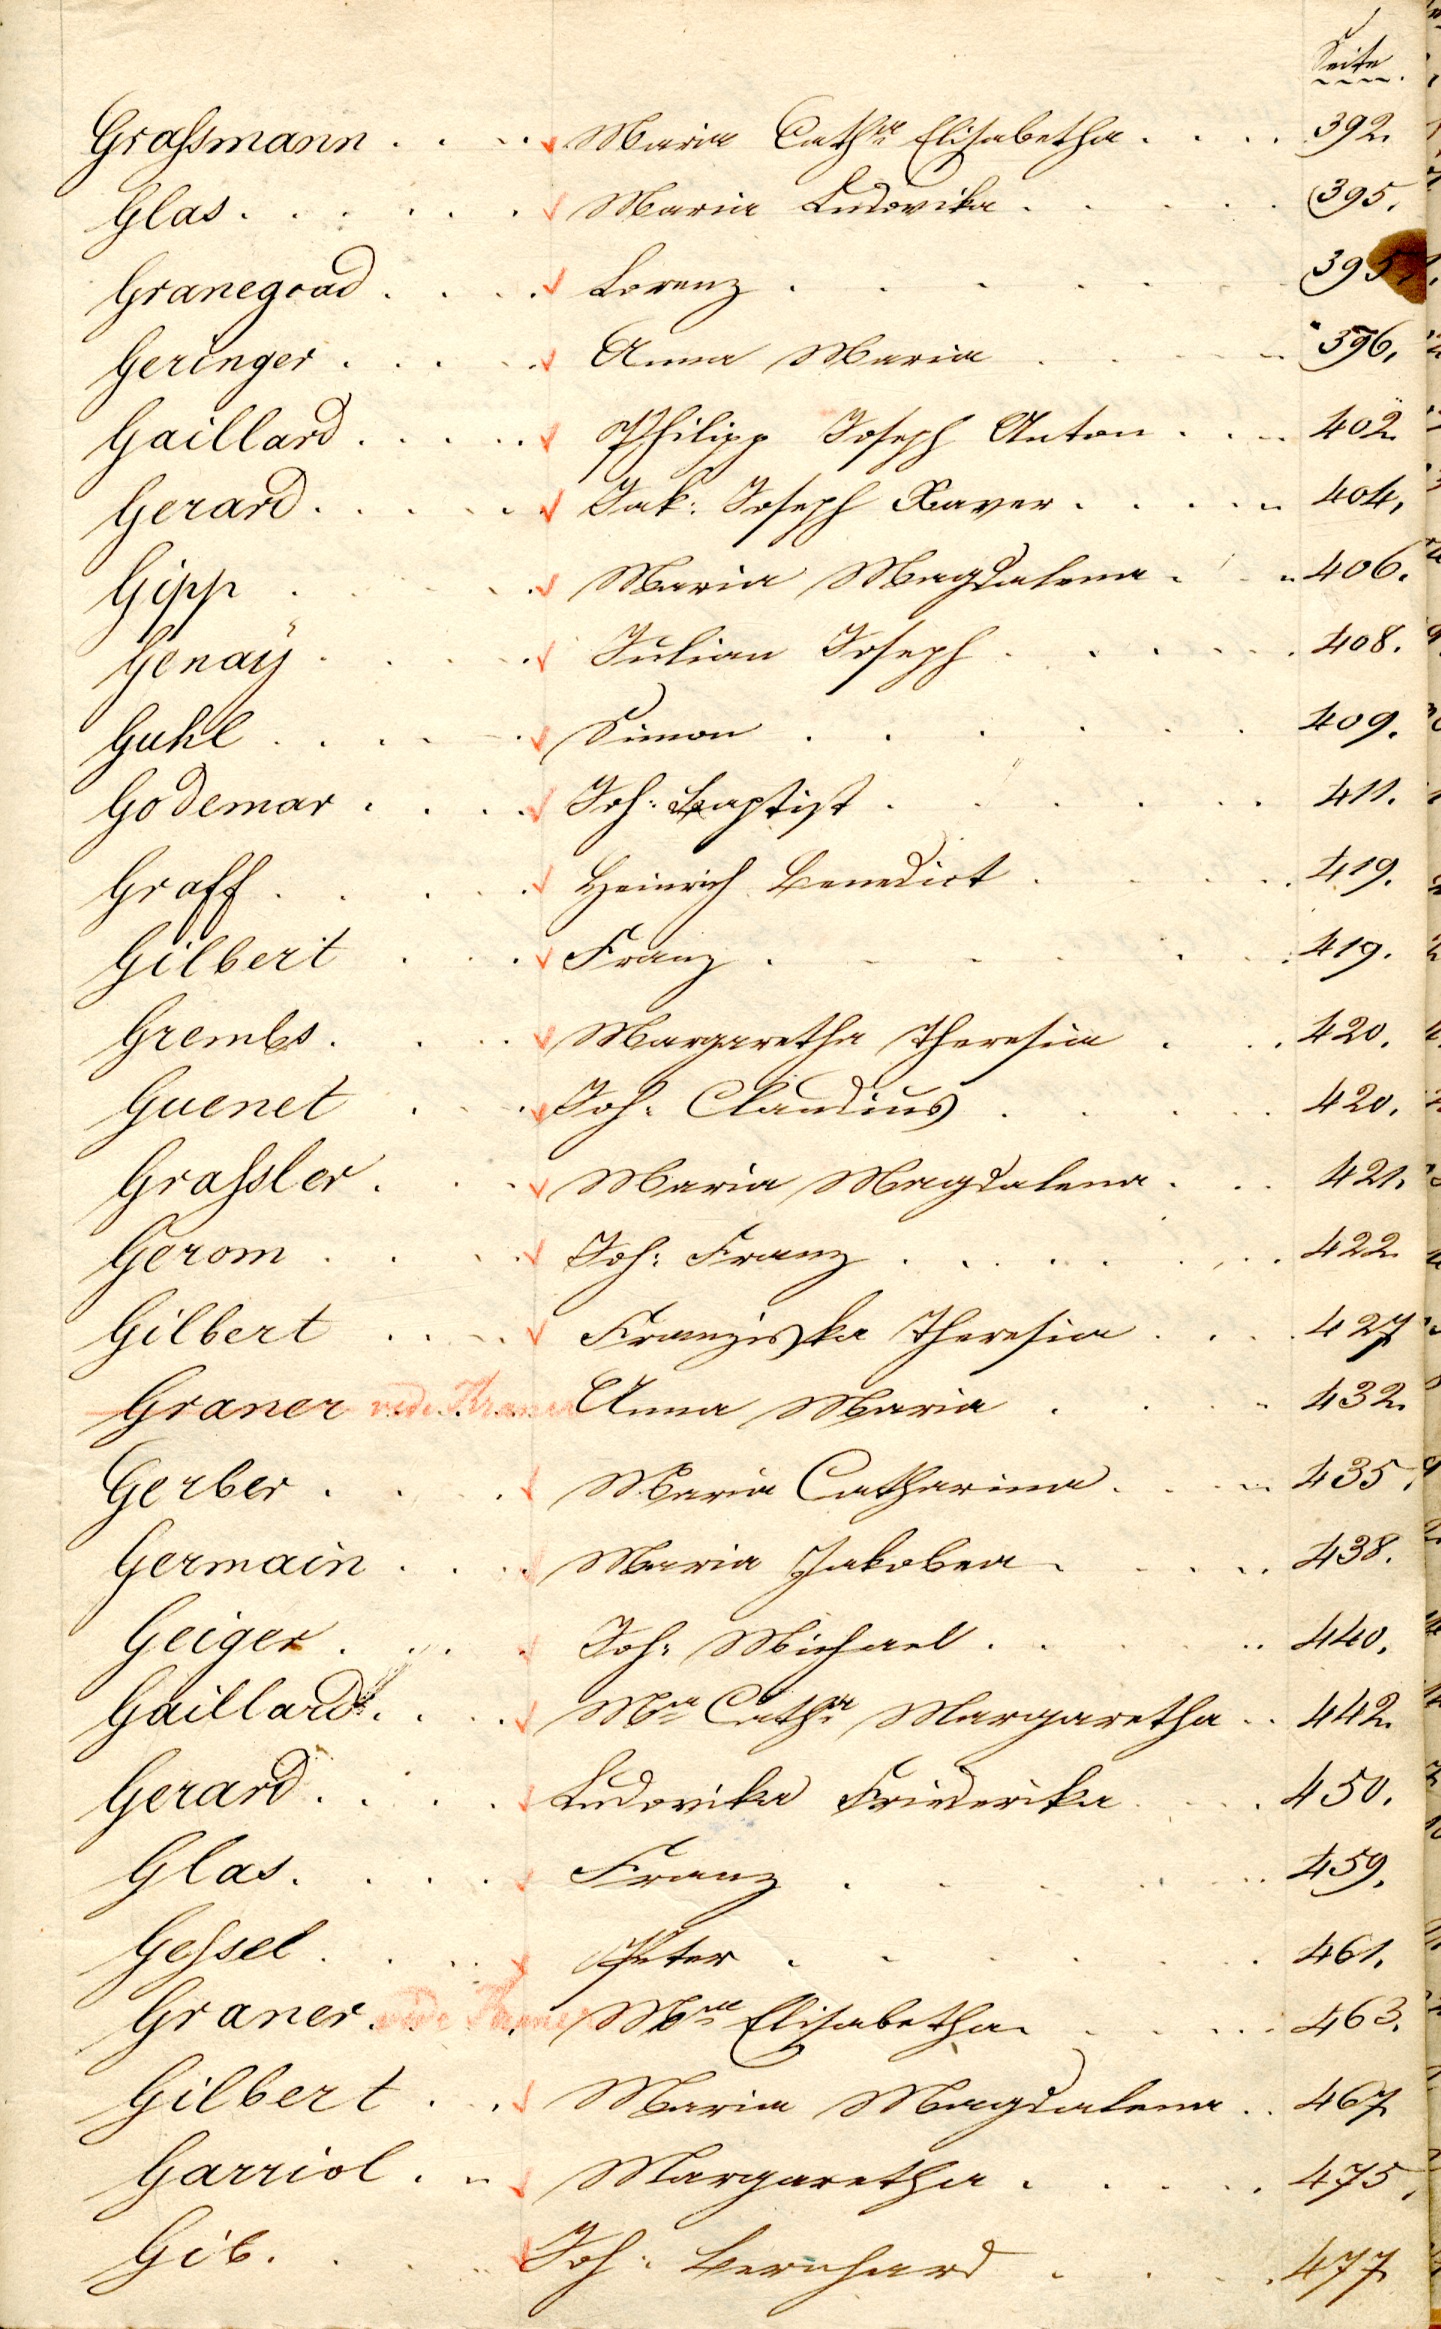 Seite
Graſsmann . . . . Maria Cathna Elisabetha . . . . 392.
Glas . . . . . . Maria Ludovika . . . . . 395.
Granegrad . . . . Lorenz . . . . . 395.
Geringer . . . . . Anna Maria . . . . 396.
Gaillard . . . . . Philipp Joseph Anton . . . 402.
Gerard . . . . . Jak: Joseph Xaver . . . . . 404.
Gipp . . . . . Maria Magdalena . . . 406.
Genaÿ . . . . . Julian Joseph . . . . . 408.
Guhl . . . . . Simon . . . . . . 409.
Godemar . . . . Joh: Baptist . . . . . . 411.
Graff . . . . . Heinrich Benedict . . . . 419.
Gilbert . . . Franz . . . . . . 419.
Grembs . . . . Margaretha Theresia . . . 420.
Guenet . . . Joh: Claudius . . . . . 420.
Graſsler . . . Maria Magdalena . . . 421.
Gerom . . . . Joh: Franz . . . . . . 422.
Gilbert . . . . Franziska Theresia . . . . 427
Graner vide Kraner Anna Maria . . . . 432.
Gerber . . . . Maria Catharina . . . . 435.
Germain . . . . Maria Jakobea . . . . . 438.
Geiger . . . . Joh: Michael . . . . . 440.
Gaillard . . . . Mra Cathna Margaretha . . 442.
Gerard . . . . Ludovika Friederika . . . 450.
Glas . . . . Franz . . . . . . 459.
Geſsel . . . . Peter . . . . . . 461.
Graner vide Kraner Mra Elisabetha . . . . . 463.
Gilbert . . . Maria Magdalena . . 467
Garriol . . . Margaretha . . . . . 475.
Gib . . . . Joh: Bernhard . . . . 477.